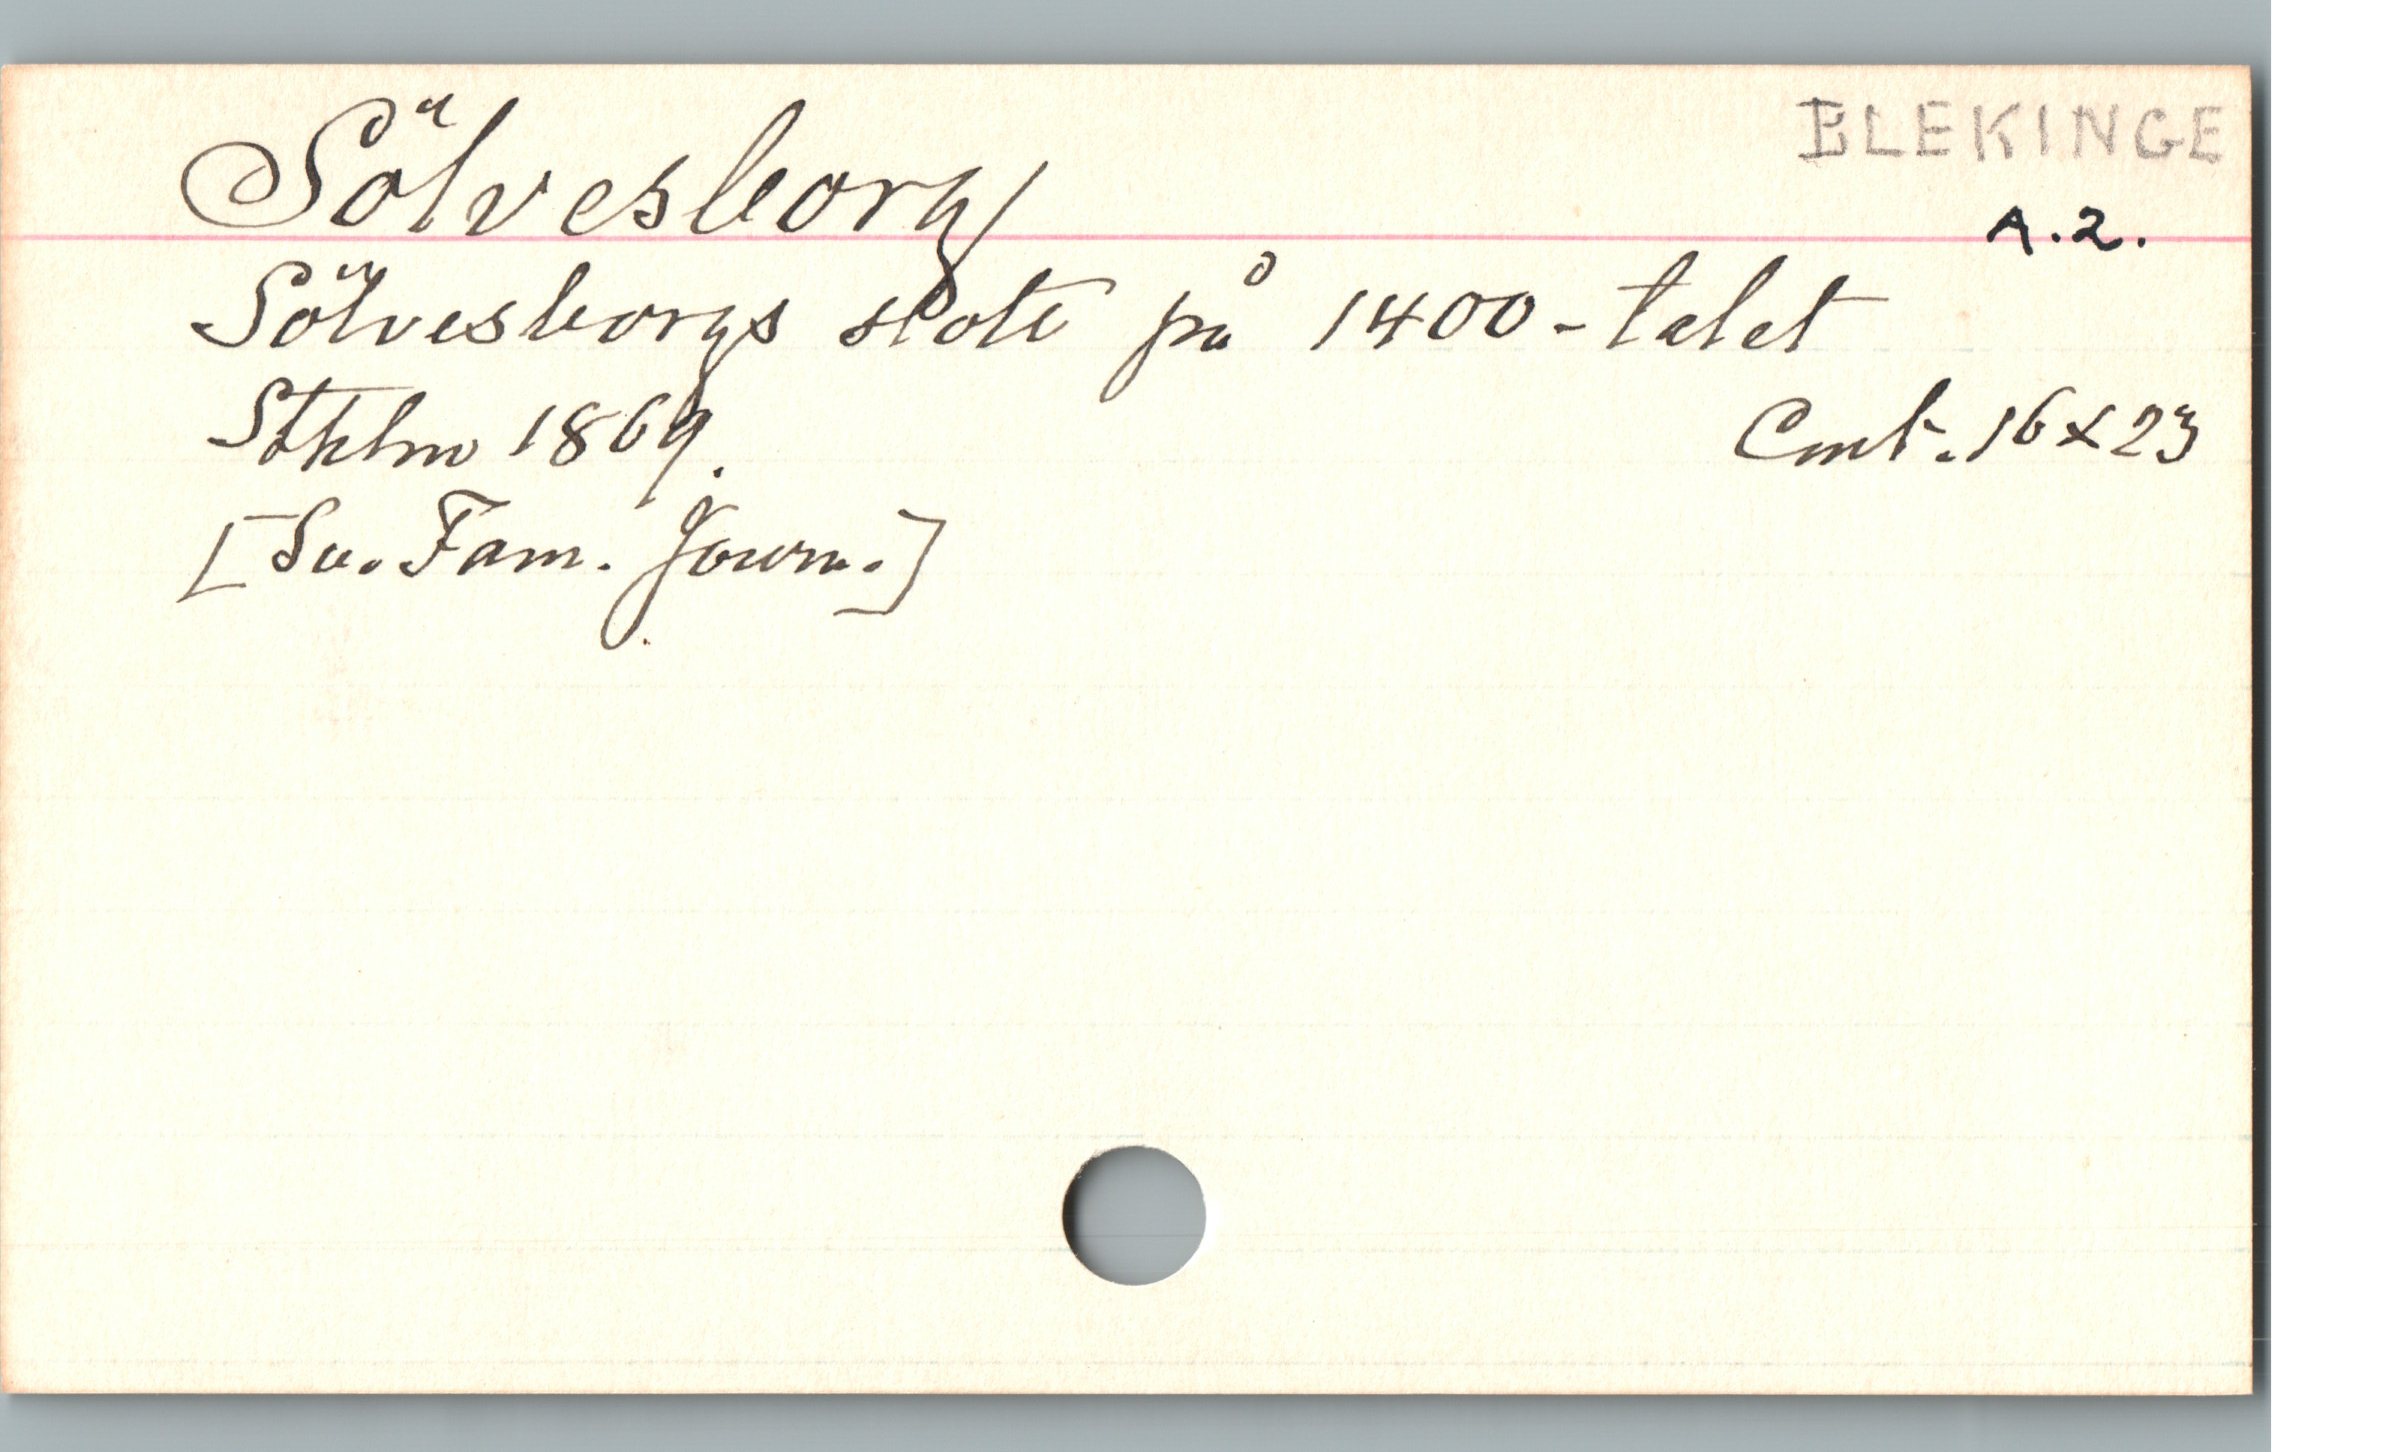 Sölvesborg
BLEKINGE
A.2.
Sölvesborgs slott på 1400-talet
Sthlm 1869.
Cmt. 16x23
[Sv. Fam. Journ.]